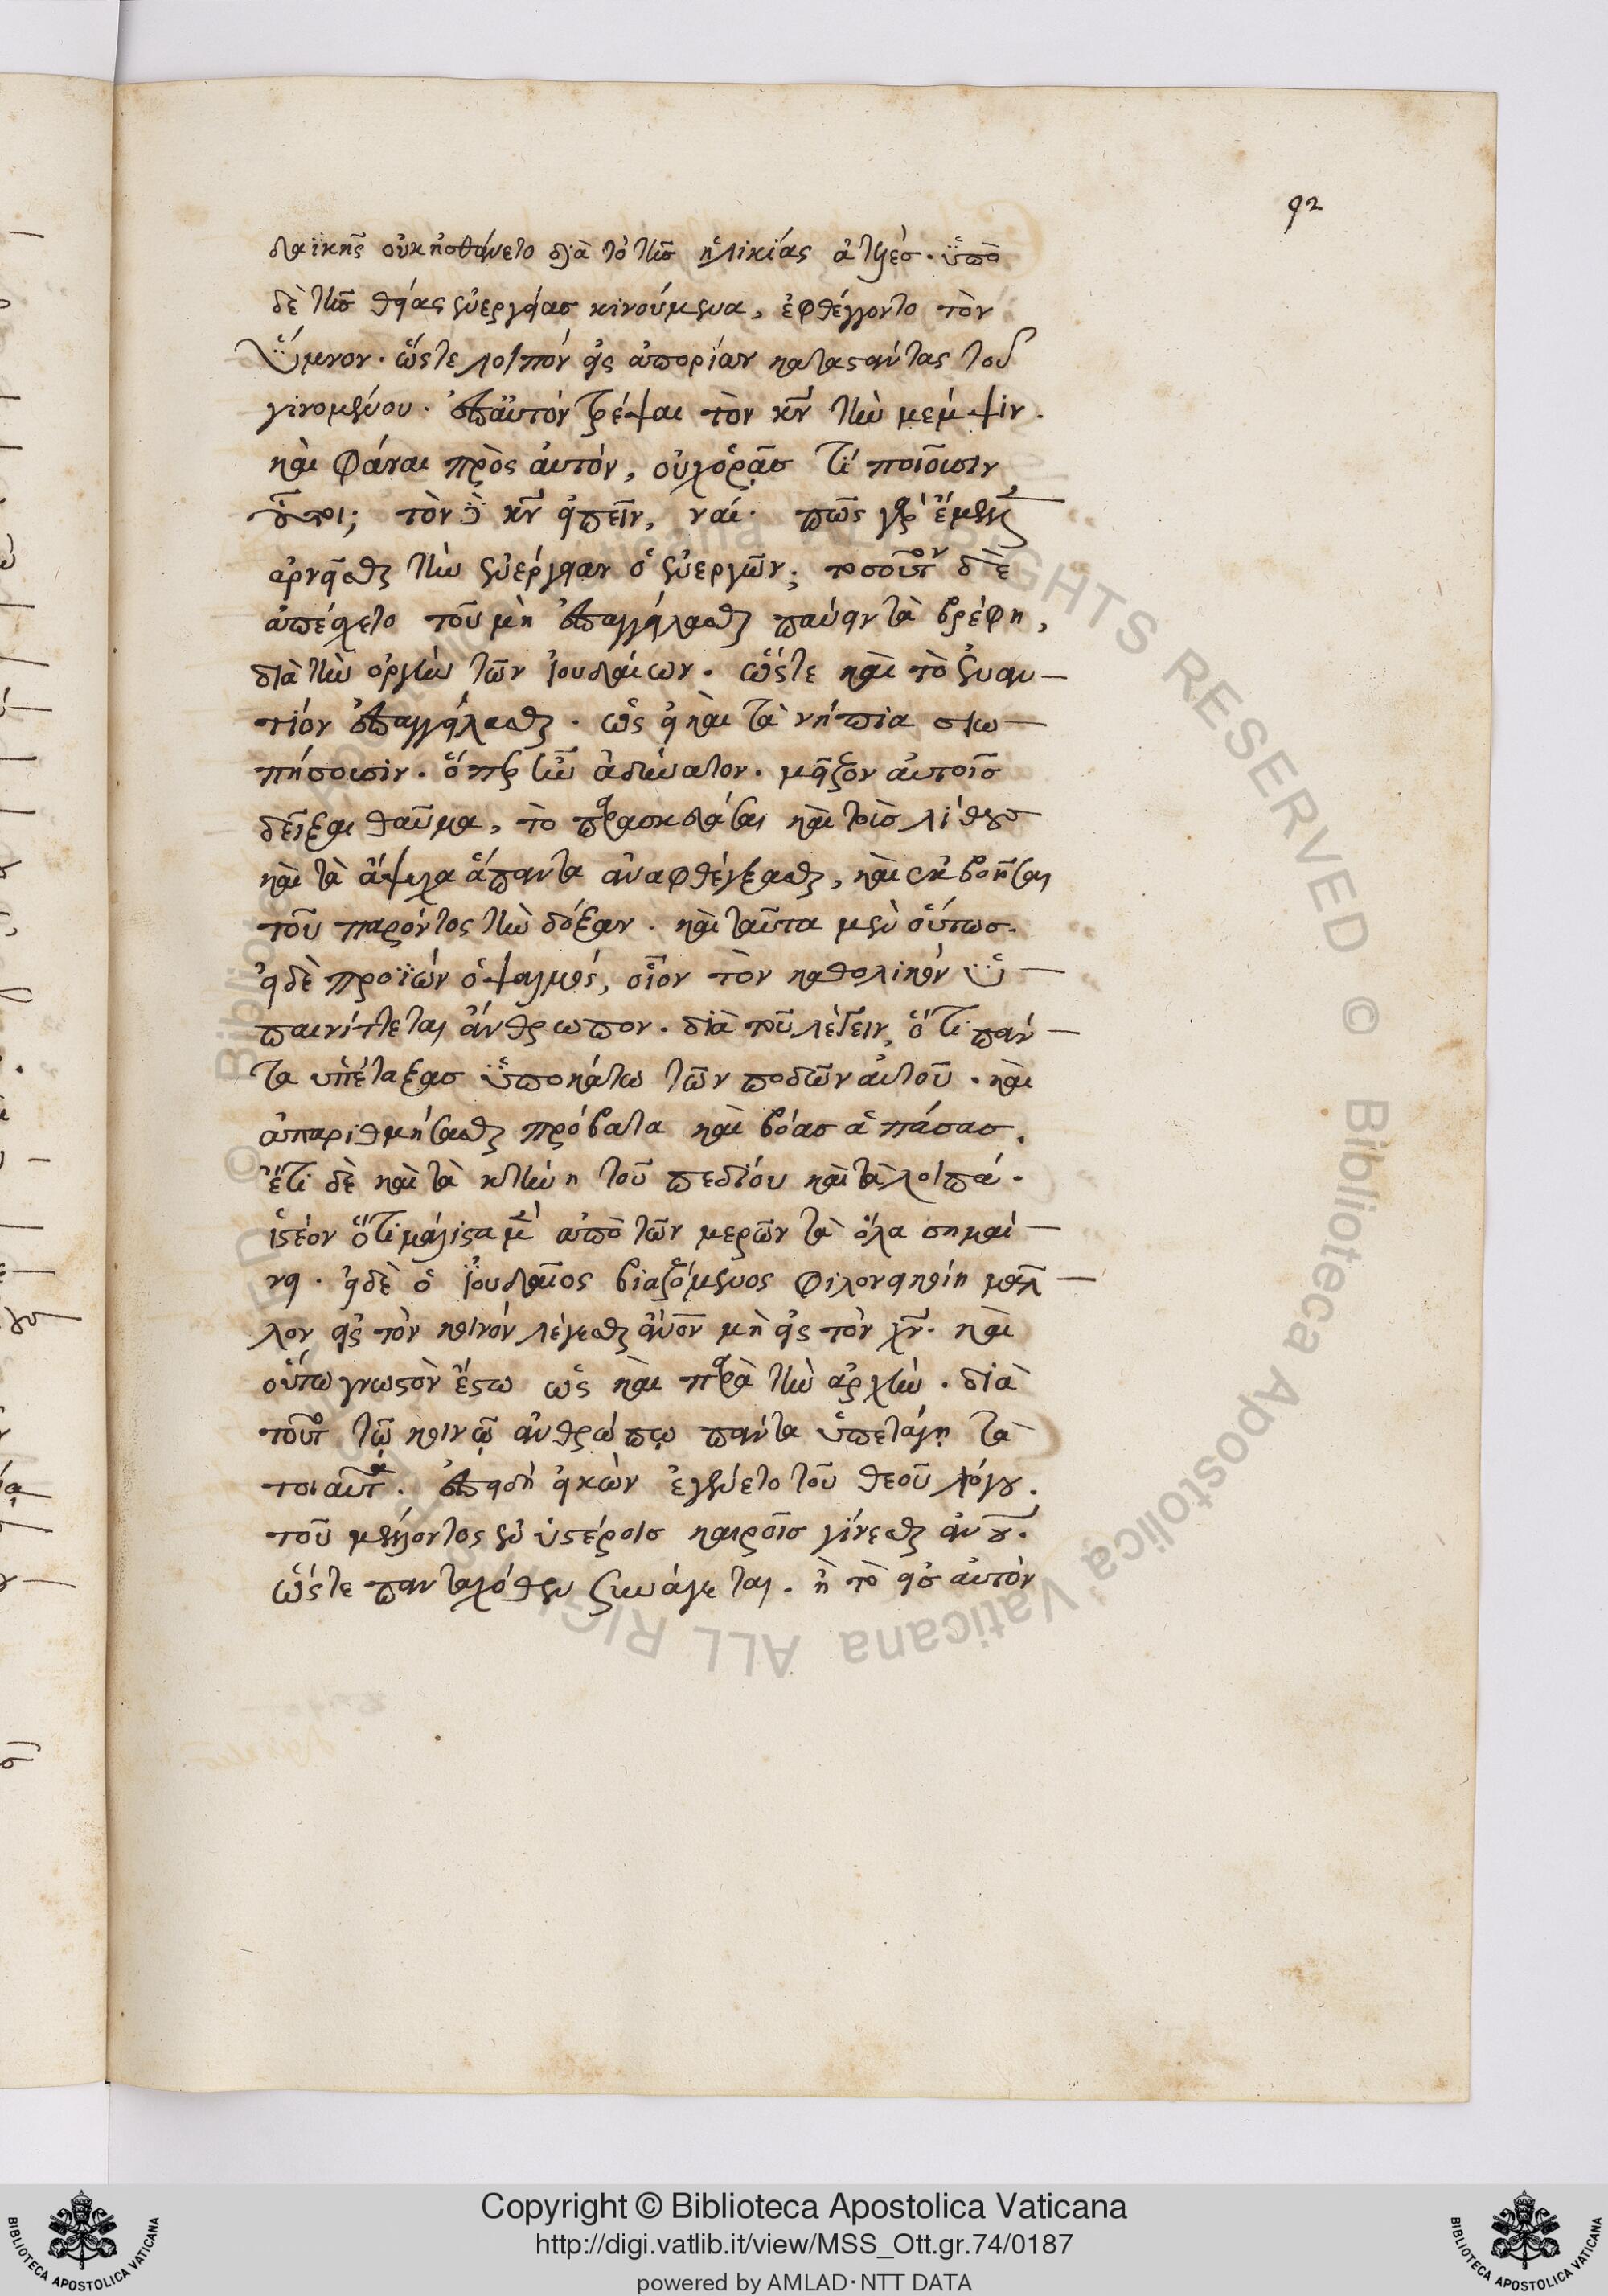 92
δαϊκῆς οὐκ ἠσθάνετο διὰ τὸ τῆς ἡλικίας ἀτελές. ὑπὸ
δὲ τῆς θείας ἐνεργείας κινούμενα, ἐφθέγγοντο τὸν
ὕμνον. ὥστε λοιπὸν εἰς ἀπορίαν καταστάντας τοῦ
γινομένου. ἐπ' αὐτὸν τρέψαι τὸν κν̅ τὴν μέμψιν.
καὶ φάναι πρὸς αὐτόν, οὐχ ὁρᾷς τί ποιοῦσιν
οὗτοι; τὸν δὲ κν̅ εἰπεῖν, ναί. πῶς γὰρ ἔμελλεν
ἀρνεῖσθαι τὴν ἐνέργειαν ὁ ἐνεργῶν; τοσοῦτον δὲ
ἀπέσχετο τοῦ μὴ ἐπαγγείλασθαι παύειν τὰ βρέφη,
διὰ τὴν ὀργὴν τῶν Ἰουδαίων. ὥστε καὶ τὸ ἐναν-
τίον ἐπαγγείλασθαι. ὡς εἰ καὶ τὰ νήπια σιω-
πήσουσιν. ὅπερ ἦν ἀδύνατον. μεῖζον αὐτοῖς
δεῖξαι θαῦμα, τὸ παρασκευάσαι καὶ τοῖς λίθους
καὶ τὰ ἄψυχα ἅπαντα ἀναφθέγξασθαι, καὶ ἐκβοῆσαι
τοῦ παρόντος τὴν δόξαν. καὶ ταῦτα μὲν οὕτως.
εἰ δὲ προϊὼν ὁ ψαλμός, οἷον τὸν καθολικὸν ὑ-
παινίττεται ἄνθρωπον. διὰ τοῦ λέγειν, ὅτι πάν-
τα ὑπέταξας ὑποκάτω τῶν ποδῶν αὐτοῦ. καὶ
ἀπαριθμήσασθαι πρόβατα καὶ βόας ἁπάσας.
ἔτι δὲ καὶ τὰ κτήνη τοῦ πεδίου καὶ τὰ λοιπά.
ἰστέον ὅτι μάλιστα μὲν ἀπὸ τῶν μερῶν τὰ ὅλα σημαί-
νει. εἰ δὲ ὁ Ἰουδαῖος βιαζόμενος φιλονεικοίη μᾶλ-
λον εἰς τὸν κοινὸν λέγεσθαι ἄνον μὴ εἰς τὸν χν̅. καὶ
οὕτω γνωστὸν ἔστω ὡς καὶ παρὰ τὴν ἀρχὴν. διὰ
τοῦτο τῷ κοινῷ ἀνθρώπῳ πάντα ὑπετάγη τὰ
τοιαῦτα. ἐπειδὴ εἰκὼν ἐγένετο τοῦ θεοῦ λόγου.
τοῦ μέλλοντος ἐν ὑστέροις καιροῖς γίνεσθαι ἀνου̅.
ὥστε πανταχόθεν συνάγεται. ἢ τὸ εἰς αὐτὸν
Copyright © Biblioteca Apostolica Vaticana
http://digi.vatlib.it/view/MSS_Ott.gr.74/0187
powered by AMLAD·NTT DATA
BIBLIOTECA APOSTOLICA VATICANA
BIBLIOTECA APOSTOLICA VATICANA
© Biblioteca Apostolica Vaticana ALL RIGHTS RESERVED © Biblioteca Apostolica Vaticana ALL RIGHTS RESERVED